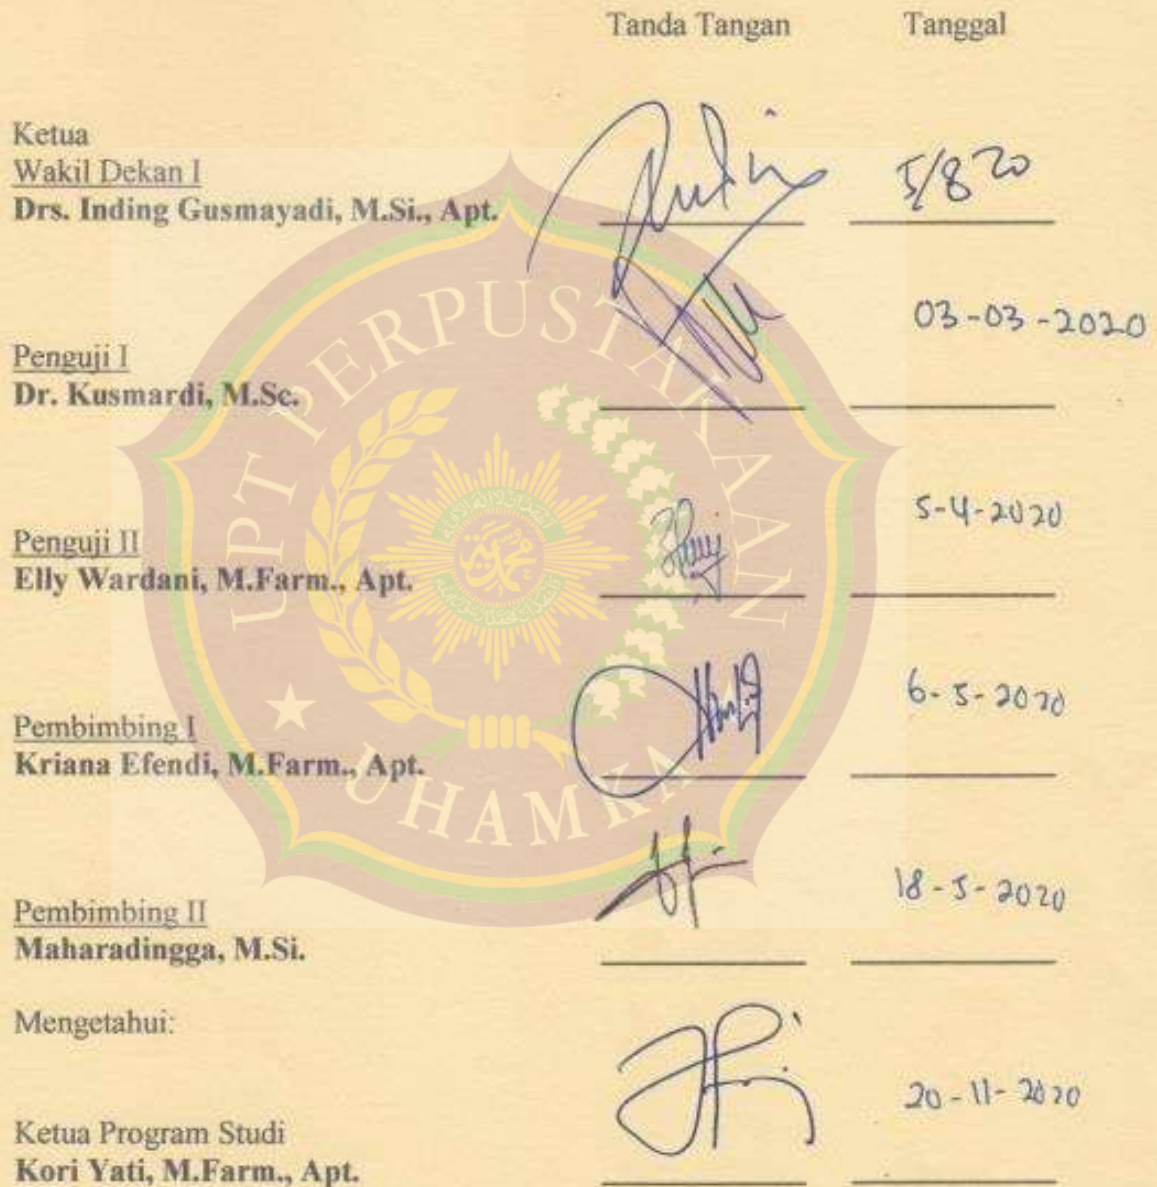 Tanda Tangan Tanggal
Ketua
Wakil Dekan I
Drs. Inding Gusmayadi, M.Si., Apt.
5/8 20
03-03-2020
Penguji I
Dr. Kusmardi, M.Sc.
5-4-2020
Penguji II
Elly Wardani, M.Farm., Apt.
6-5-2020
Pembimbing I
Kriana Efendi, M.Farm., Apt.
18-5-2020
Pembimbing II
Maharadingga, M.Si.
Mengetahui:
20-11-2020
Ketua Program Studi
Kori Yati, M.Farm., Apt.
UPT PERPUSTAKAAN
UHAMKA